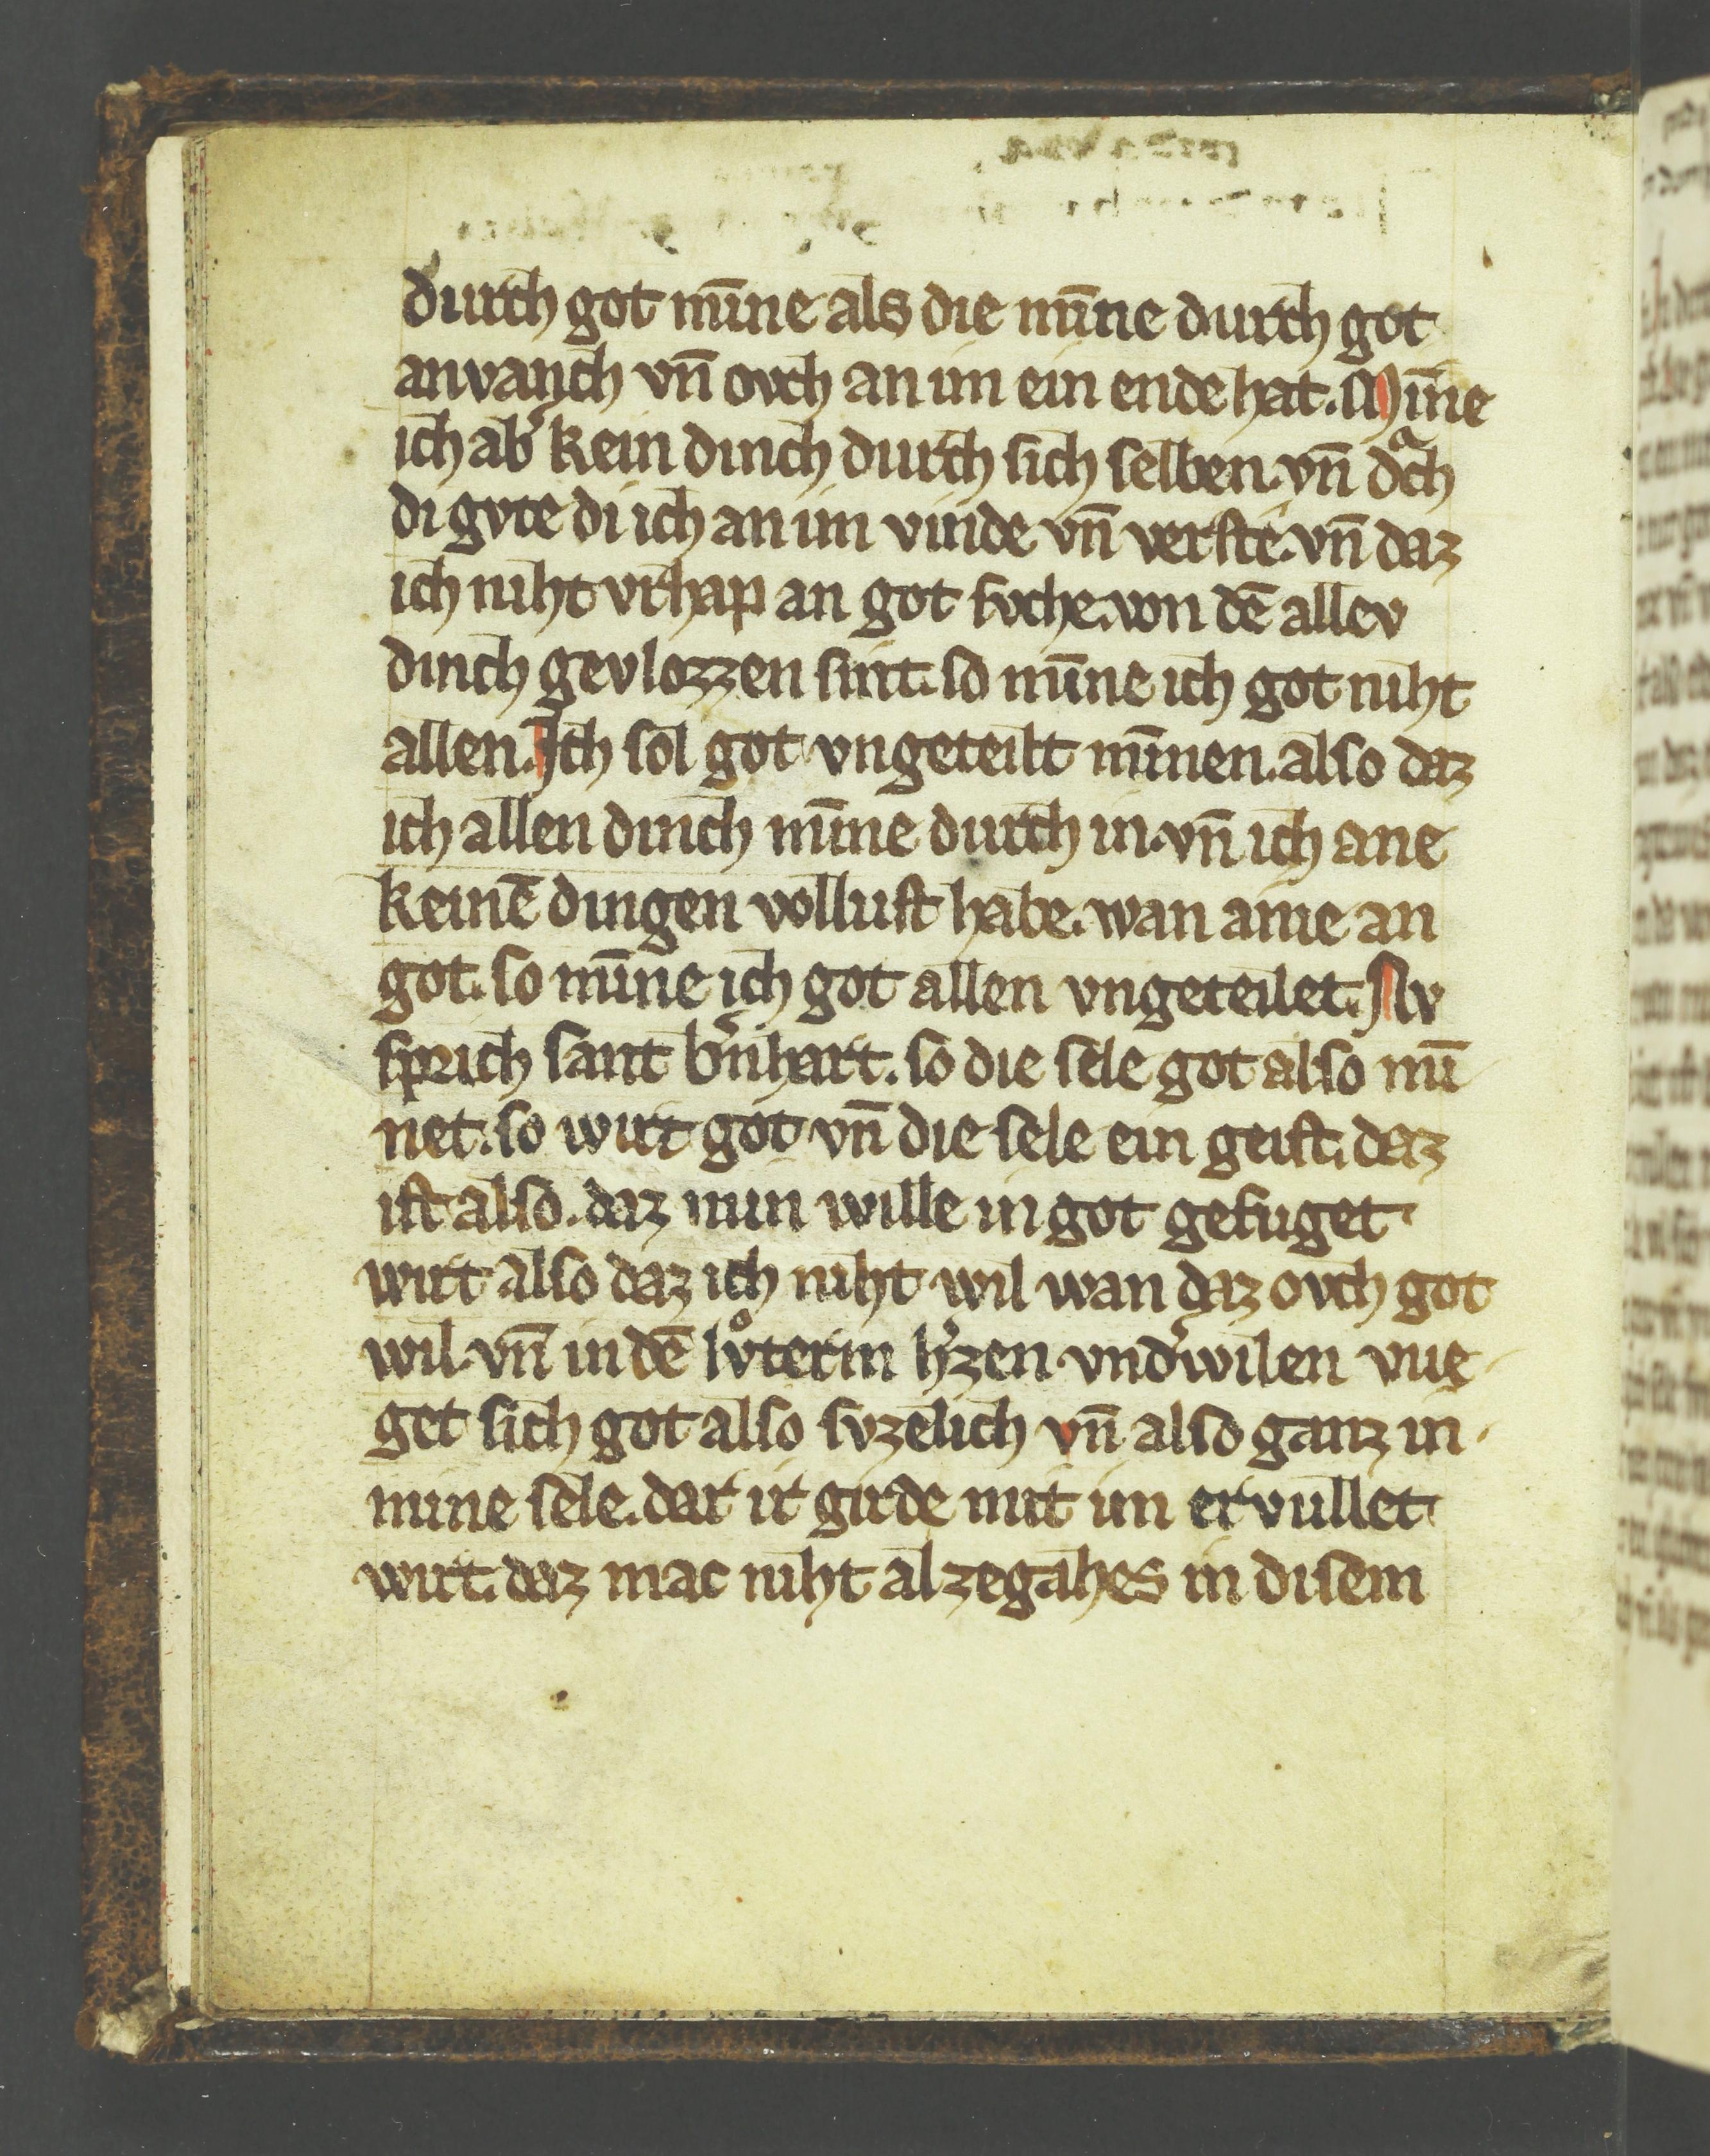 durch got mīne als die mīne durch got
anvanch vn̄ ovch an im ein ende hat. Mīne
ich ab͛ kein dinch durch sich selben. vn̄ dͣch
di gvte di ich an im vinde vn̄ verste. vn̄ daz
ich niht vrhap an got svche. von dē allev
dinch gevlozzen sint. so mīne ich got niht
allen. Ich sol got vngeteilt mīnen. also daz
ich allen dinch mīne durch in. vn̄ ich ane
keinē dingen vollust habe. wan anie an
got. so mīne ich got allen vngeteilet. Nv
sprich sant b͛nhart. so die sele got also mī
net. so wirt got vn̄ die sele ein geist. daz
ist also. daz min wille in got gefuget
wirt also daz ich niht wil wan daz ovch got
wil. vn̄ in dē lvͦterim h͛zen. vnd͛wilen vue
get sich got also svzelich vn̄ also ganz in
mine sele. dar ir girde mit im ervullet
wirt. daz mac niht alzegahes in disem